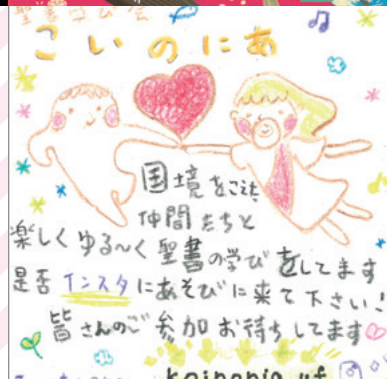 聖書学び会
こいのにあ
国境をこえた
仲間たちと
楽しくゆる〜く聖書の学びをしてます
是否インスタにあそびに来て下さい!
皆さんのご参加お待ちしてます
koinonia.uf